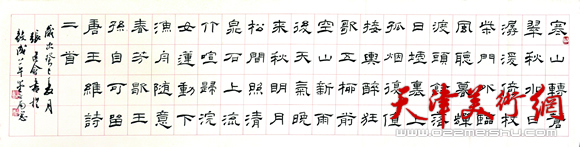 寒山轉蒼
翠秋水日
潺湲倚杖
柴門外臨
風聽暮蟬
渡頭餘落
日墟里上
孤煙復值
接輿醉狂
歌五柳前
空山新雨
後天氣晚
來秋明月
松間照清
泉石上流
竹喧歸浣
女蓮動下
漁舟隨意
春芳歇王
孫自可留
唐王維詩
二首
歲次癸巳春月
天津美術網